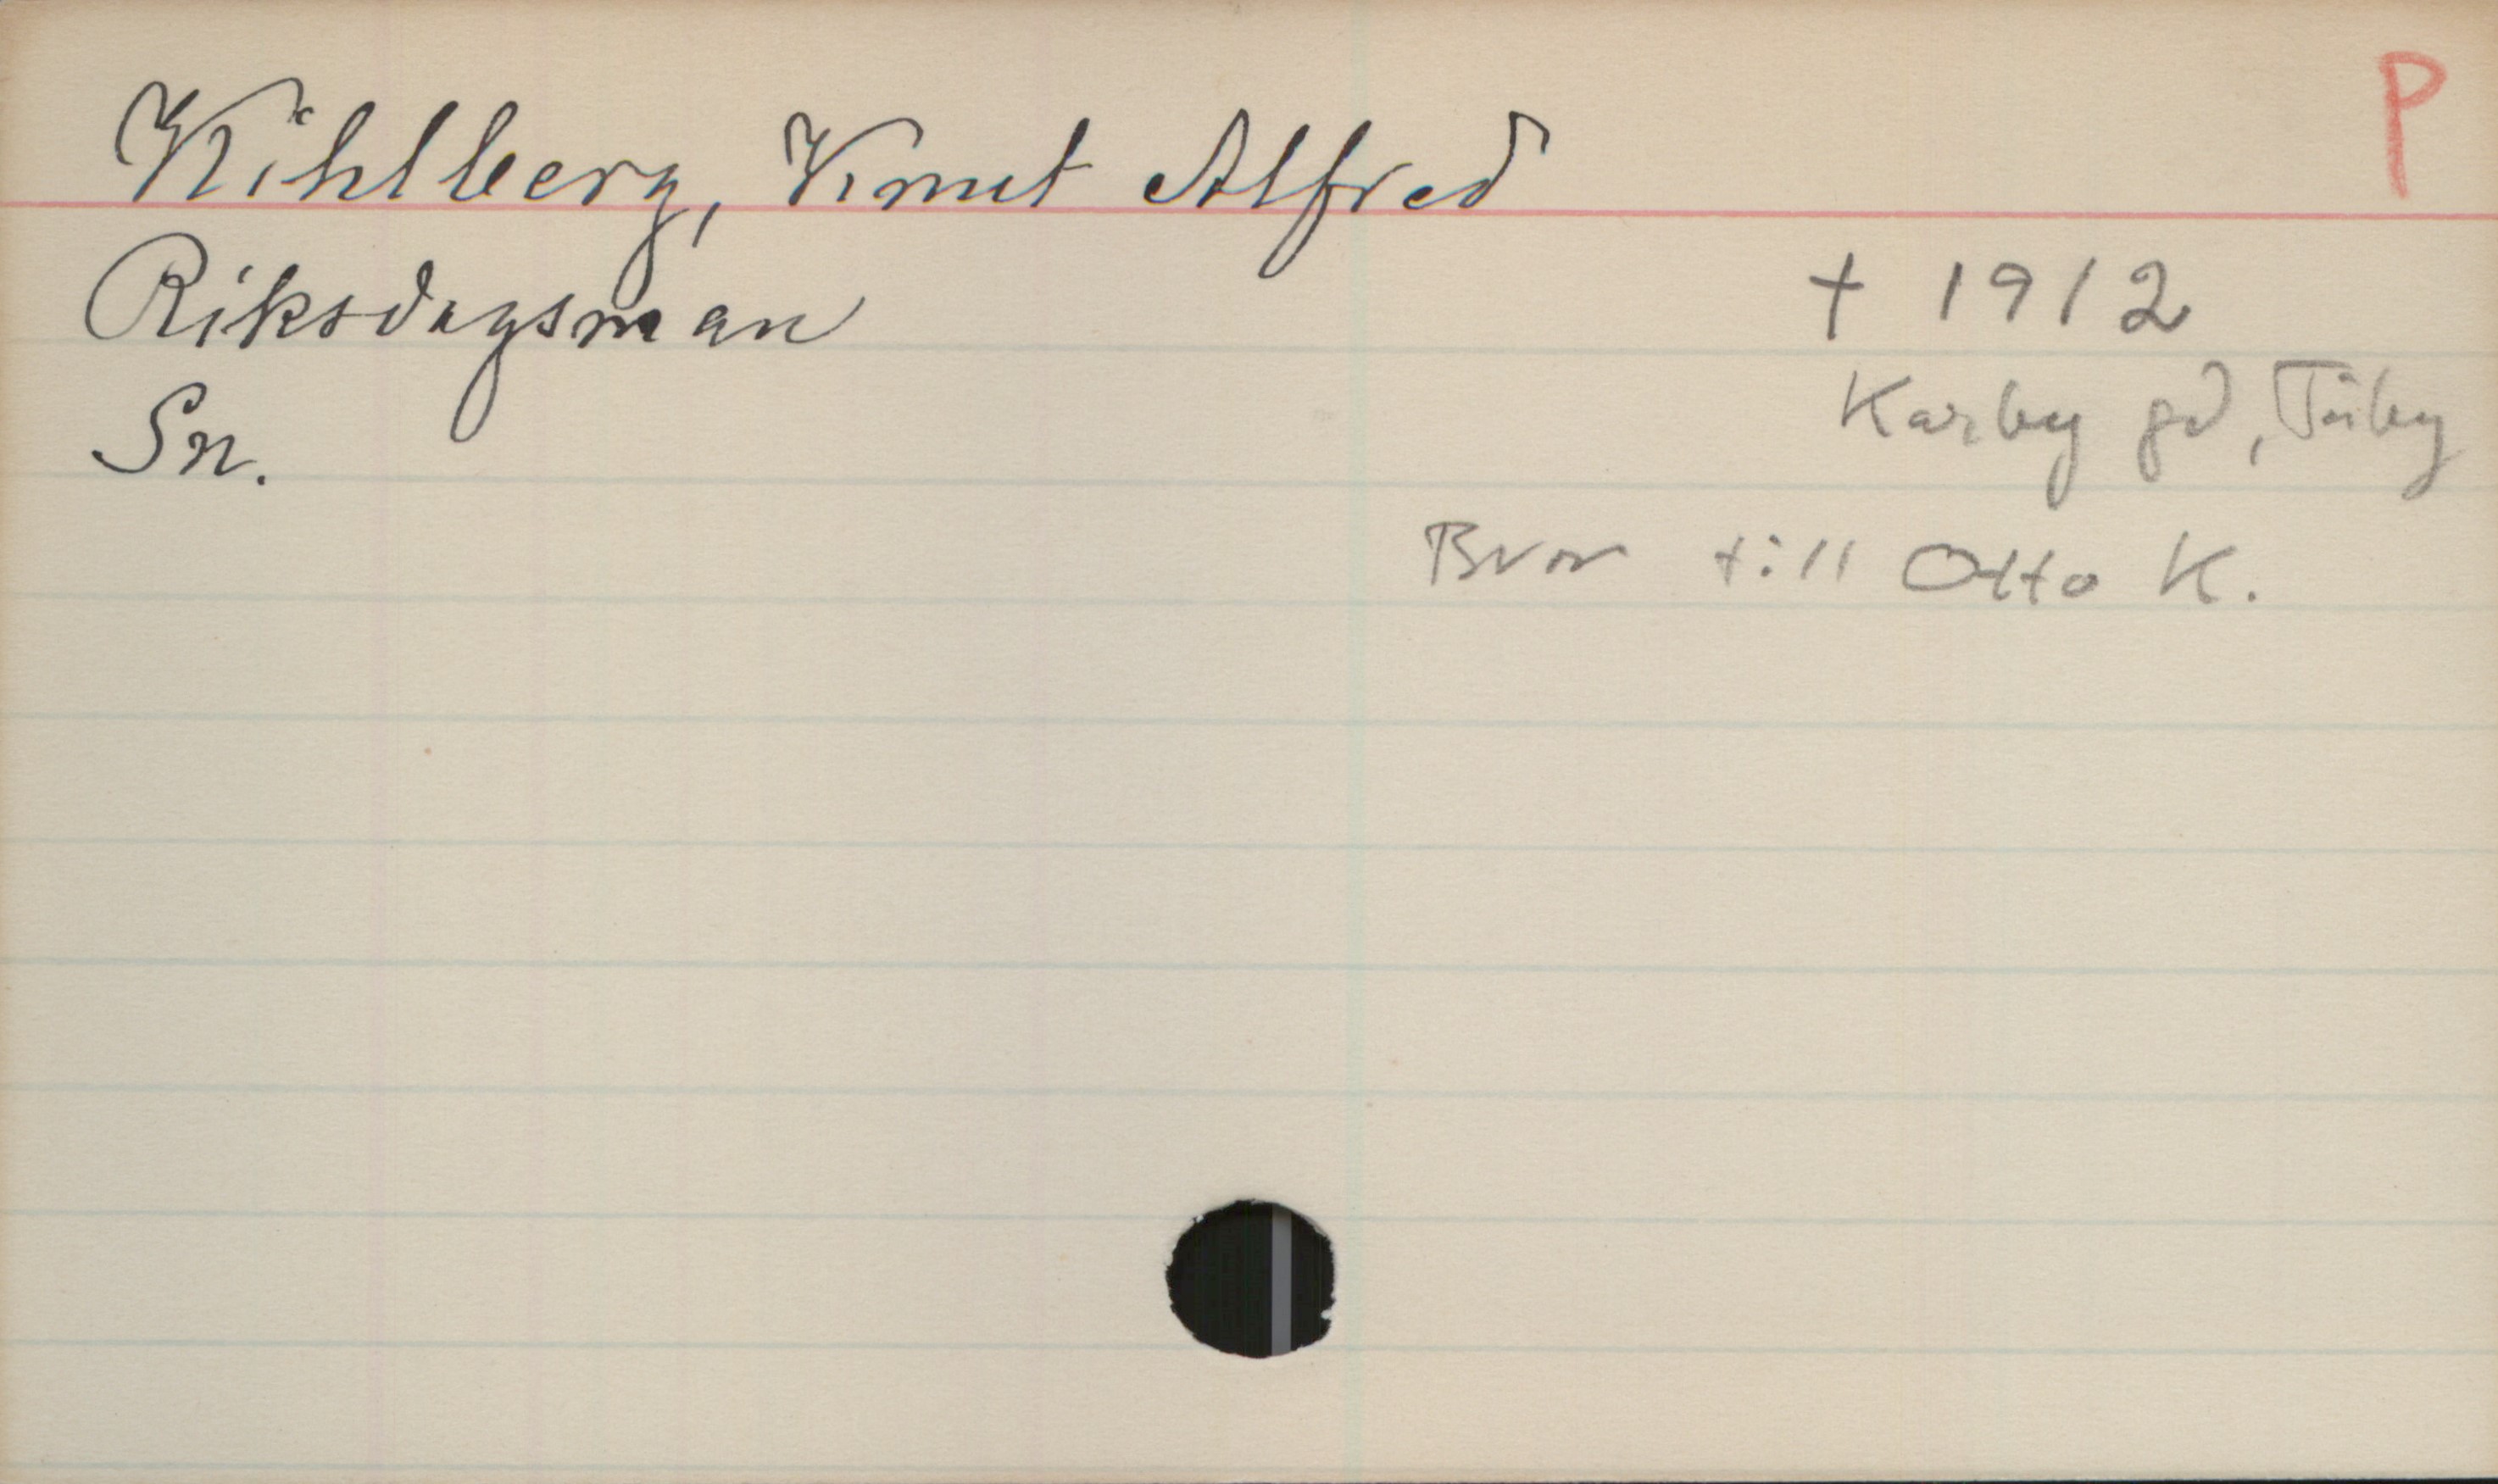 P
Kihlberg, Knut Alfred
Riksdagsman
† 1912
Sn.
Karby gd, Täby
Bror till Otto K.